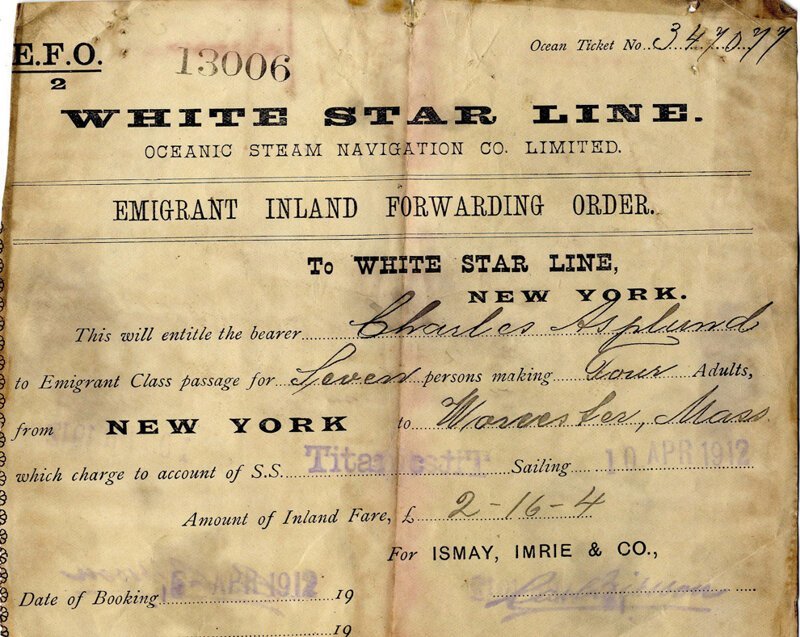 E.F.O.
2
13006
Ocean Ticket No. 347077
WHITE STAR LINE.
OCEANIC STEAM NAVIGATION CO. LIMITED.
EMIGRANT INLAND FORWARDING ORDER.
To WHITE STAR LINE,
NEW YORK.
This will entitle the bearer Charles Asplund
to Emigrant Class passage for Seven persons making Four Adults,
from NEW YORK to Worcester, Mass
which charge to account of S.S. Titanic Sailing 10 APR 1912
Amount of Inland Fare, £ 2-16-4
For ISMAY, IMRIE & CO.,
Date of Booking APR 1912 19
19